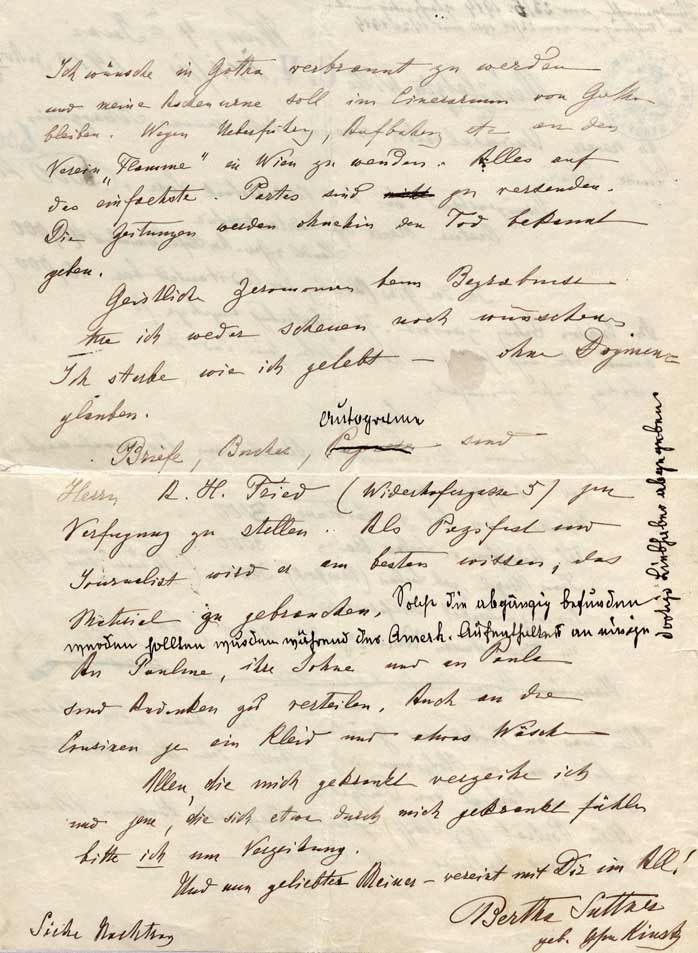 Ich wünsche in Gotha verbrannt zu werden
und meine Aschenurne soll im Cinerarium von Gotha
bleiben. Wegen Ueberführung, Aufbahrung etc an den
Verein "Flamme" in Wien zu wenden. Alles auf
das einfachste. Partes sind nicht zu versenden.
Die Zeitungen werden ohnehin den Tod bekannt
geben.
Geistliche Zeremonien beim Begräbnisse
ich weder scheuen noch wünschen.
Ich sterbe wie ich gelebt — ohne Dogmen-
glauben.
Autograme
Briefe, Bücher, sind
Herrn A. H. Fried (Widerhofergasse 5) zur
Verfügung zu stellen. Als Pazifist und
Journalist wird er am besten wissen, das
Material zu gebrauchen. Solche die abgängig befunden
werden sollten wurden während des Amerk. Aufenthaltes an einige
dortige Liebhaber abgegeben
An Pauline, ihre Söhne und an Paula
sind Andenken zu verteilen. Auch an die
Cousinen je ein Kleid und etwas Wäsche
Allen, die mich gekränkt verzeihe ich
und jene, die sich etwa durch mich gekränkt fühlen
bitte ich um Verzeihung.
Und nun geliebter Meiner – vereint mit Dir im All!
Bertha Suttner
geb. Kinsky
Siehe Nachtrag